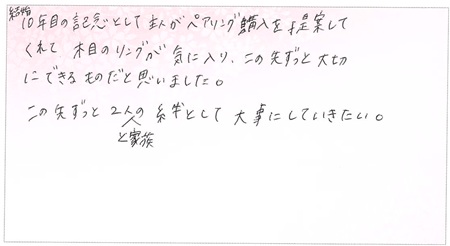 結婚
10年目の記念として主人がペアリング購入を提案して
くれて 木目のリングが気に入り、この先ずっと大切
にできるものだと思いました。
この先ずっと2人の絆として大事にしていきたい。
と家族